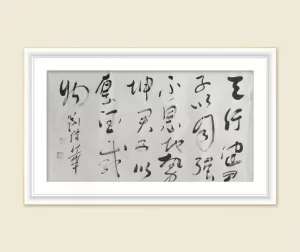 天行健君
子以自强
不息地势
坤君子以
厚德载
物